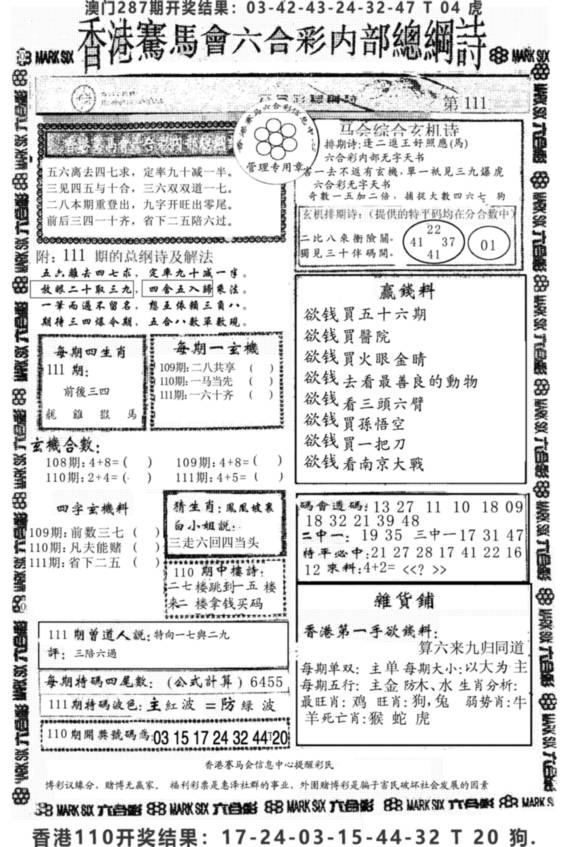 澳门287期开奖结果：03-42-43-24-32-47 T 04 虎
香港賽馬會六合彩内部總綱詩
MARK SIX
MARK SIX
第 111
香港赛马会六合彩信息中心
管理专用章
五六离去四七求，定率九十减一半。
三见四五与十合，三六双双道一七。
二八本期重登出，九字开旺出零尾。
前后三四一十齐，省下二五陪六过。
附：111 期的总纲诗及解法
五六離去四七求，定率九十减一半。
放眼二十取三九，四舍五入歸乘法。
一筆而過不留名，想五依賴三負八。
期待三四爆令期，五合八數單數現。
马会综合玄机诗
排期诗：逢二進王好照應(馬)
六合彩内部无字天书
若一去不返有玄機，單一祇見三九爆虎
六合彩无字天书
奇數一五加二倍，捕捉大數四六七 狗
玄机排期诗：（提供的特平码均在分合数中）
二比八來衝險關。
獨見三十伴碼開。
22
41 37
41
01
每期四生肖
111 期：
前後三四
龍 雞 馬
每期一玄機
109期：二八共享 （ ）
110期：一马当先 （ ）
111期：一六十齐 （ ）
赢錢料
欲钱買五十六期
欲钱買醫院
欲钱買火眼金晴
欲钱去看最善良的動物
欲钱看三頭六臂
欲钱買孫悟空
欲钱買一把刀
欲钱看南京大戰
玄機合數：
108期：4+8=( ) 109期：4+8=( )
110期：2+4=( ) 111期：4+5=( )
四字玄機料
109期：前数三七（ ）
110期：凡夫能赌（ ）
111期：省下二五（ ）
猜生肖：鳳凰坡裏
白小姐説：
三走六回四当头
110 期中樓詩：
二七 楼跳到一五 楼
来二 楼拿钱买码
碼會透碼：13 27 11 10 18 09
18 32 21 39 48
二中一： 19 35 三中一17 31 47
特平必中：21 27 28 17 41 22 16
12 來料：4+2= <<? >>
111 期曾道人説：特向一七與二九
評：三陪六過
每期特碼四尾數：（公式計算）6455
111期特碼波色：主紅波 =防緑 波
110 期開獎號碼為：03 15 17 24 32 44T20
雜貨鋪
香港第一手欲錢料：
算六来九归同道
每期单双：主单每期大小：以大为主
每期五行：主金防木、水 生肖分析：
最旺肖：鸡 旺肖：狗，兔 弱势肖：牛
羊死亡肖：猴 蛇 虎
香港赛马会信息中心提醒彩民
博彩议缘分，赌博无赢家。 福利彩票是惠泽社群的事业，外围赌博彩是骗子害民破坏社会发展的因素
MARK SIX 六合彩 MARK SIX 六合彩 MARK SIX 六合彩 MARK SIX 六合彩 MARK SIX
香港110开奖结果：17-24-03-15-44-32 T 20 狗.